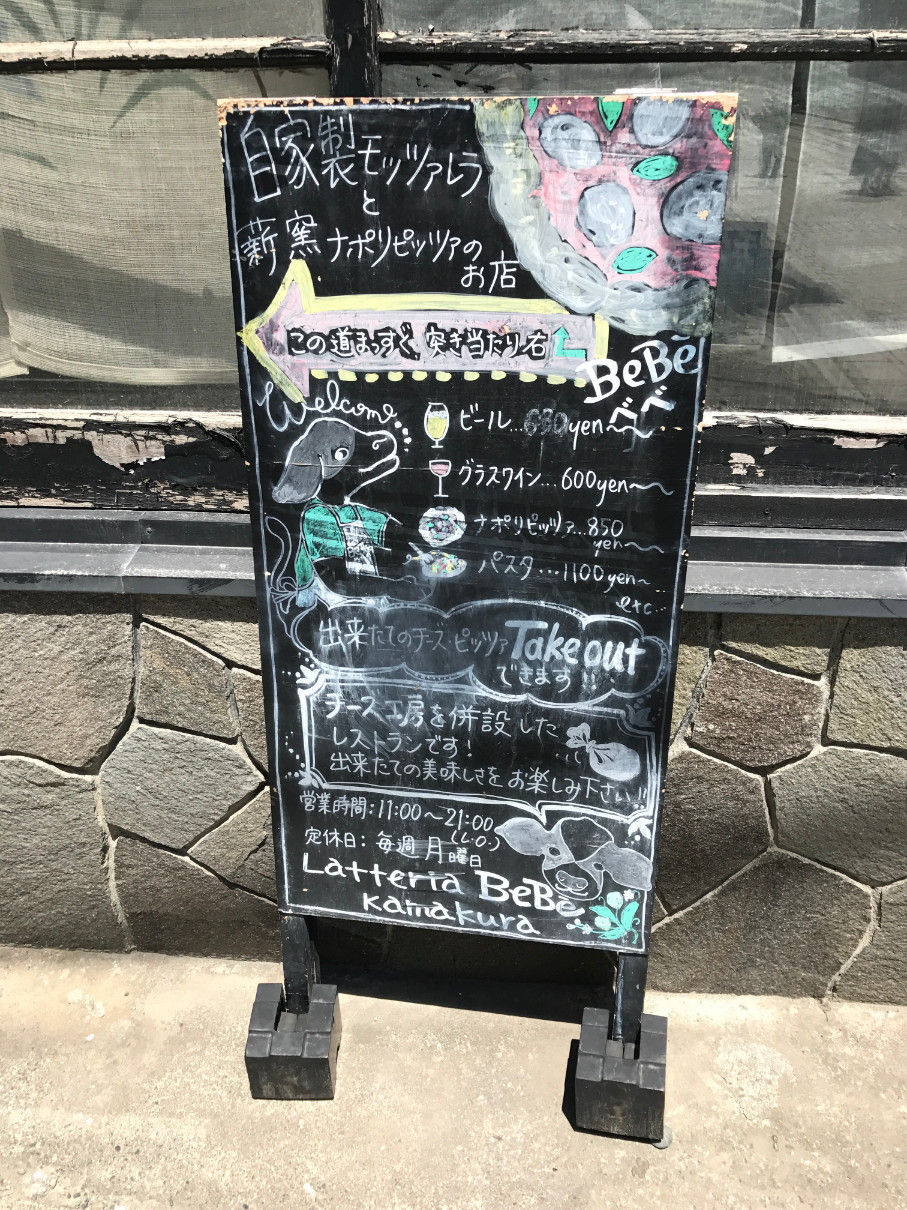 自家製モッツァレラ
と
薪窯ナポリピッツァの
お店
この道まっすぐ、突き当たり右
BeBè
べべ
Welcome
ビール...680yen〜
グラスワイン...600yen〜
ナポリピッツァ...850
yen〜
パスタ...1100yen〜
etc...
出来たてのチーズ・ピッツァ Take out
できます!!
チーズ工房を併設した
レストランです!
出来たての美味しさをお楽しみ下さい!!
営業時間:11:00〜21:00
(L.O.)
定休日:毎週月曜日
Latteria BeBè
Kamakura